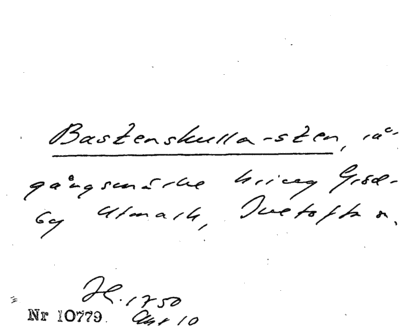 Bastenskulla-sten, rå-
gångsmärke kring Gisle-
by Utmark, Ivetofta s.
H. 1750
Nr 10779. Akt 10